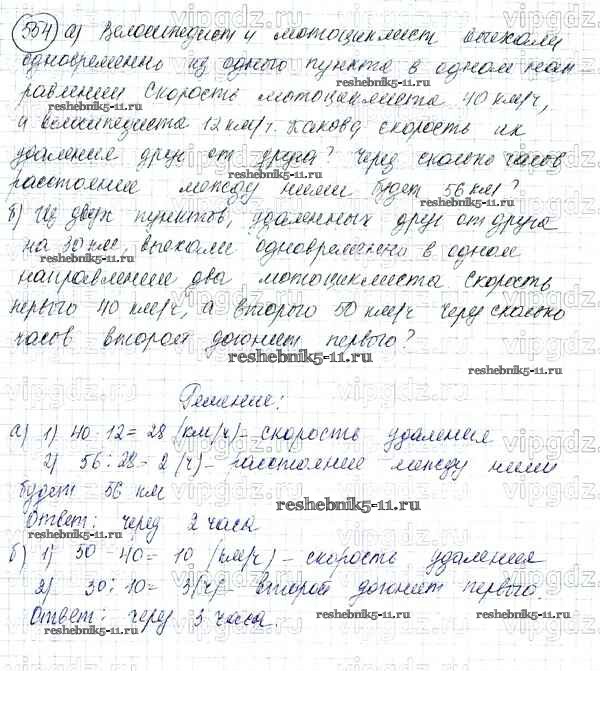 554 а) Велосипедист и мотоциклист выехали
одновременно из одного пункта в одном нап-
равлении Скорость мотоциклиста 40 км/ч,
а велосипедиста 12 км/ч. Какова скорость их
удаления друг от друга? Через сколько часов
расстояние между ними будет 56 км?
б) Из двух пунктов, удаленных друг от друга
на 30 км, выехали одновременно в одном
направлении два мотоциклиста. Скорость
первого 40 км/ч, а второго 50 км/ч Через сколько
часов второй догонит первого?
Решение:
а) 1) 40 - 12 = 28 (км/ч) – скорость удаления
2) 56 : 28 = 2 (ч) – расстояние между ними
будет 56 км
Ответ: через 2 часа
б) 1) 50 - 40 = 10 (км/ч) – скорость удаления
2) 30 : 10 = 3 (ч) – второй догонит первого.
Ответ: через 3 часа.
reshebnik5-11.ru
vipgdz.ru